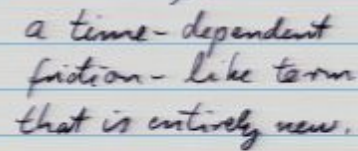 a time-dependent
friction-like term
that is entirely new.